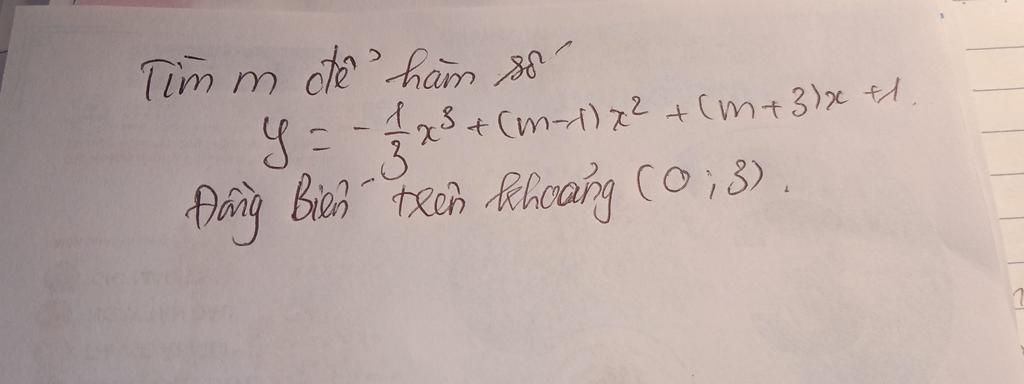 Tìm m để hàm số
y = - 1/3 x³ + (m-1)x² + (m+3)x +1.
Đồng Biến trên khoảng (0;3).